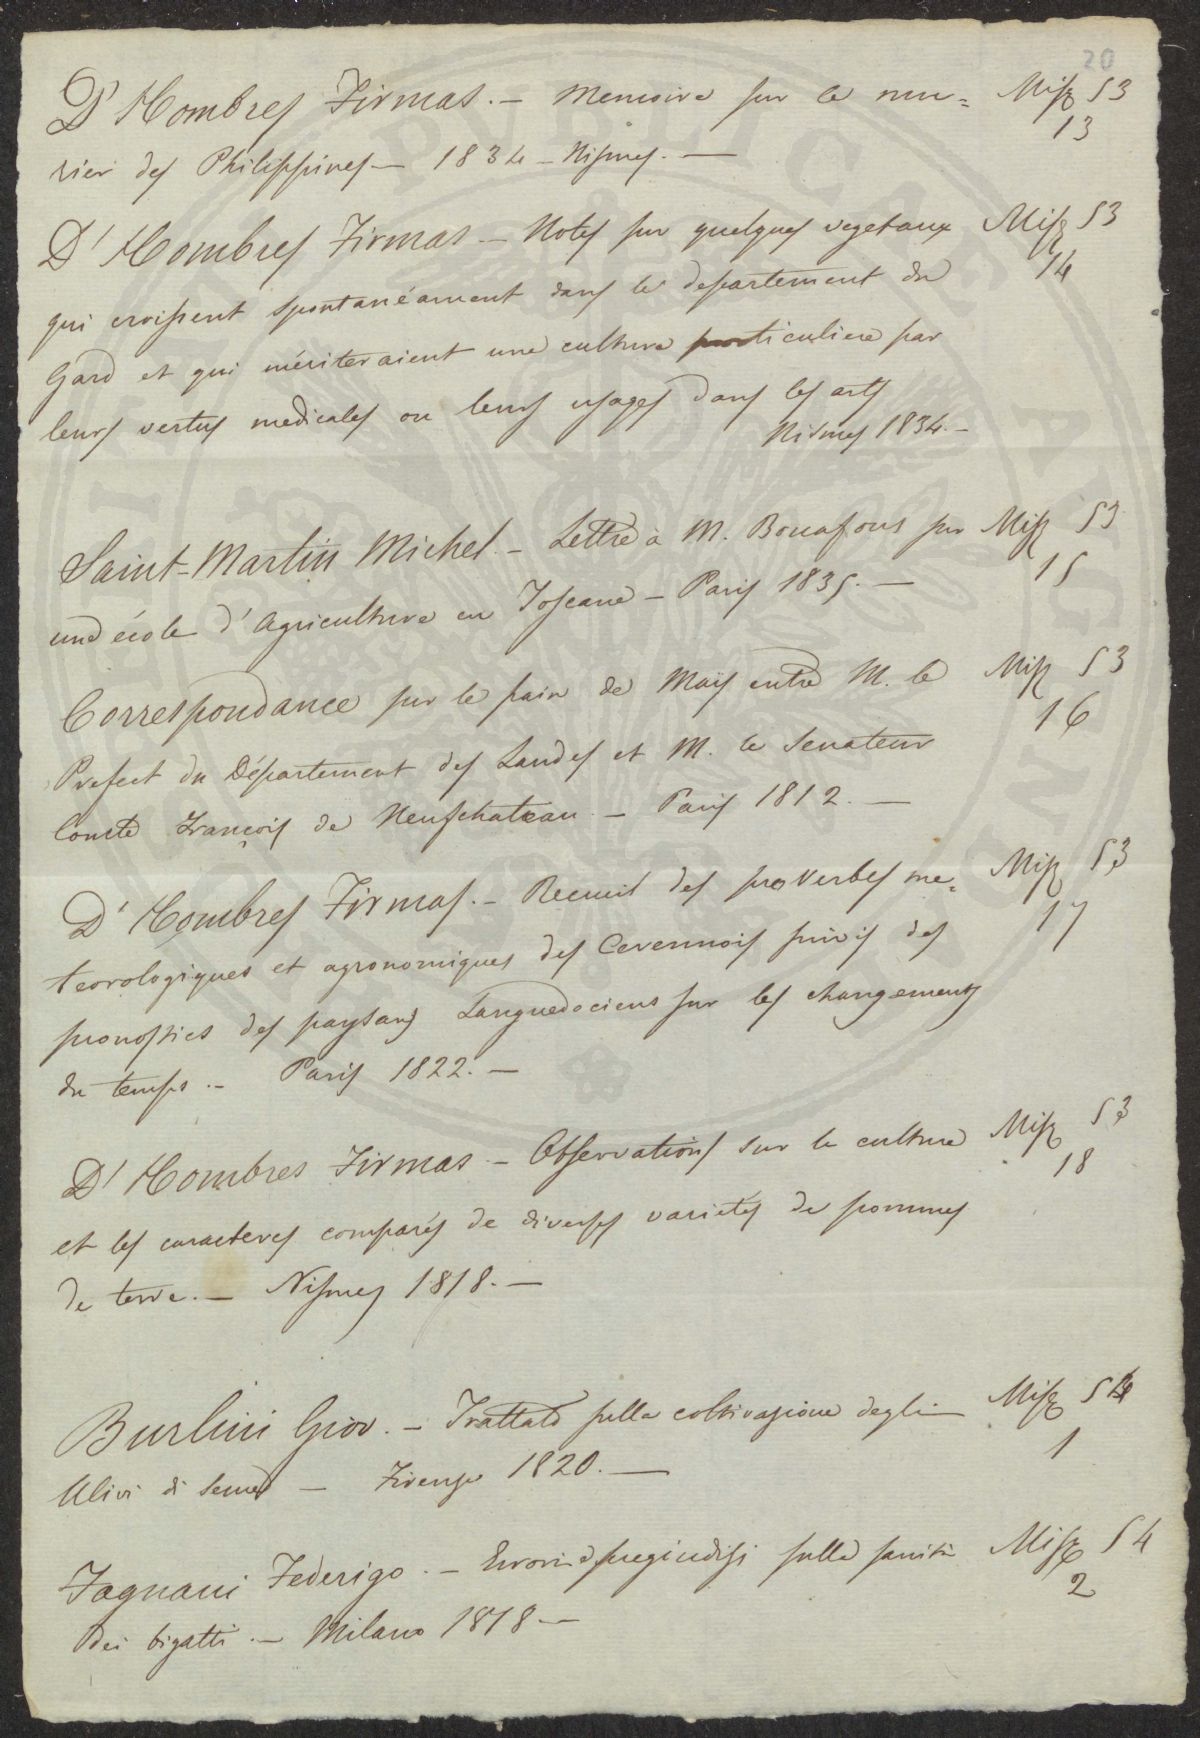 20
D'Hombres Firmas. — Memoire sur le mu= Misz 53
rier des Philippines — 1834 — Nismes. — 13
D'Hombres Firmas — Notes sur quelques vegetaux Misz 53
qui croissent spontanéament dans le departement du 14
Gard et qui mériteraient une culture particuliere par
leurs vertus medicales ou leurs usages dans les arts
Nismes 1834. —
Saint-Martin Michel. — Lettre à M. Bonafous sur Misz 53
une école d'Agriculture en Toscane — Paris 1835. — 15
Correspondance sur le pain de Maïs entre M. le Misz 53
Prefect du Département des Landes et M. le Senateur 16
Comte François de Neufchateau — Paris 1812. —
D'Hombres Firmas. — Recueil des proverbes me= Misz 53
teorologiques et agronomiques des Cevennois suivis des 17
pronostics des paysans Languedociens sur les changements
du temps. — Paris 1822. —
D'Hombres Firmas — Observations sur la culture Misz 53
et les caracteres comparés de diverses variétés de pommes 18
de terre. — Nismes 1818. —
Burlini Giov. — Trattato sulla coltivazione degli Misz 54
Ulivi di seme — Firenze 1820. — 1
Fagnani Federigo. — Errori e pregiudizi sulla sanità Misz 54
dei bigatti. — Milano 1818 — 2